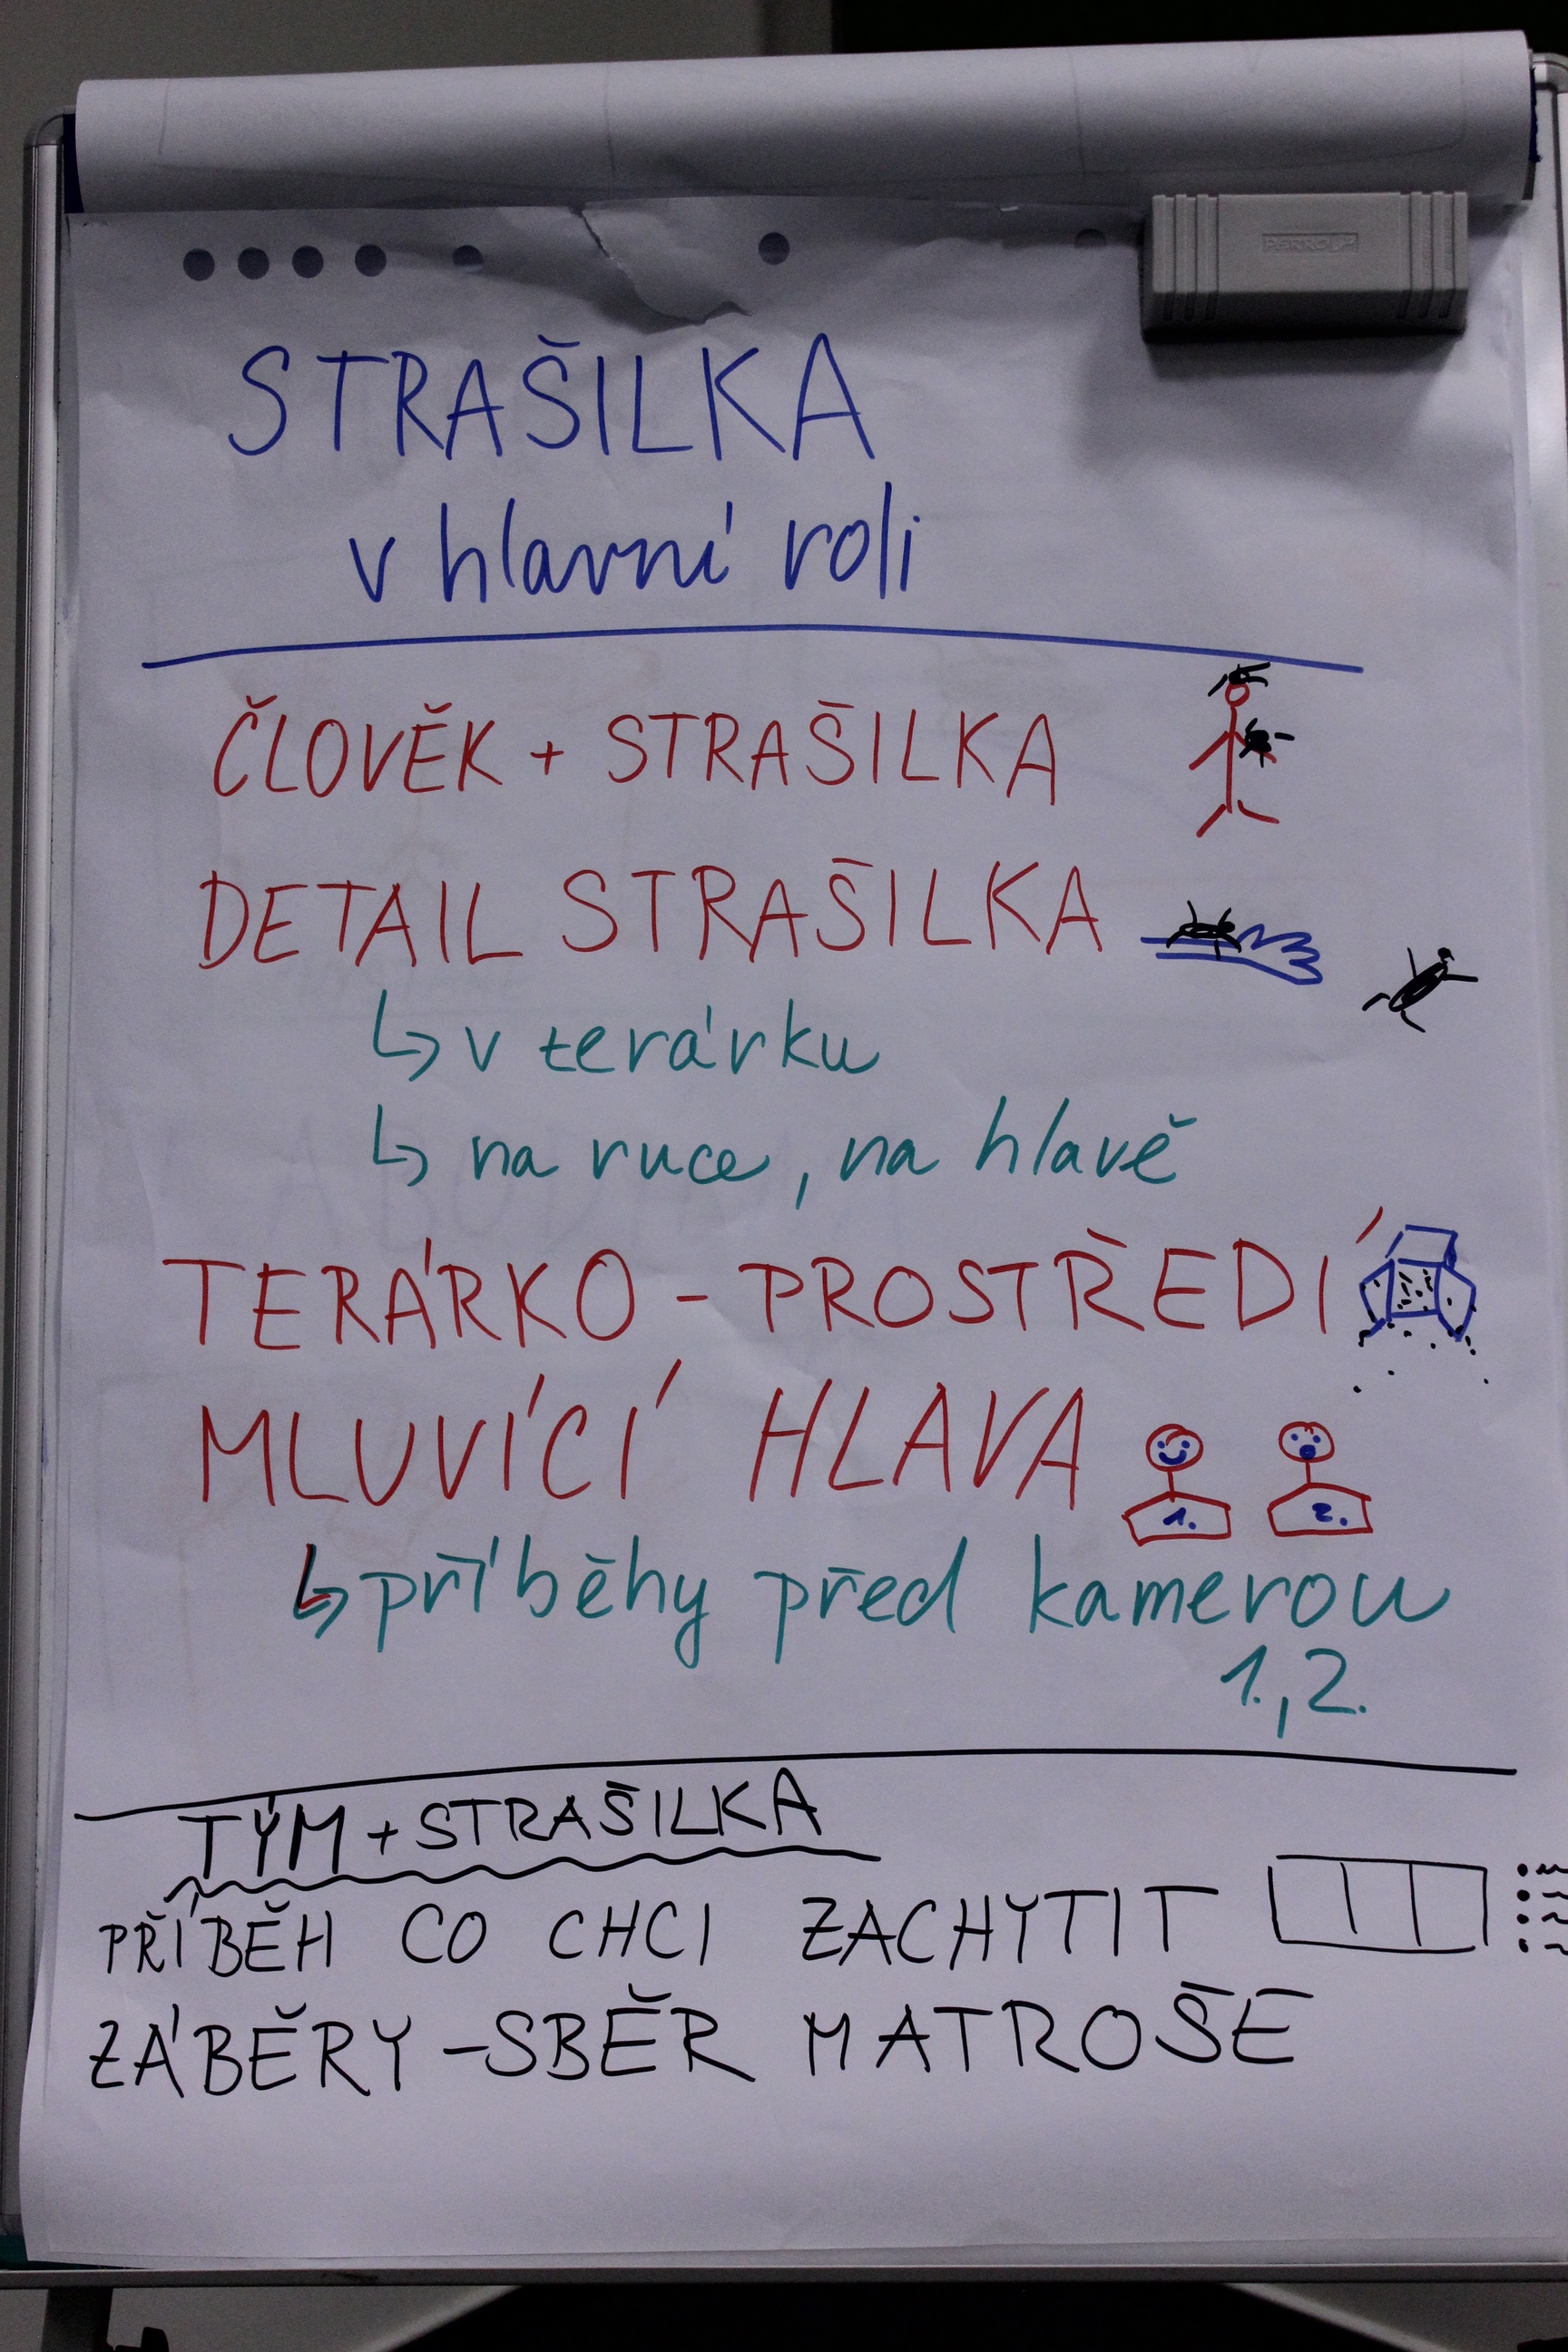 PERRO
STRAŠILKA
v hlavní roli
ČLOVĚK + STRAŠILKA
DETAIL STRAŠILKA
↳ v terárku
↳ na ruce, na hlavě
TERÁRKO - PROSTŘEDÍ
MLUVÍCÍ HLAVA
1. 2.
↳ příběhy před kamerou
1., 2.
TÝM + STRAŠILKA
PŘÍBĚH CO CHCI ZACHYTIT
ZÁBĚRY - SBĚR MATROŠE